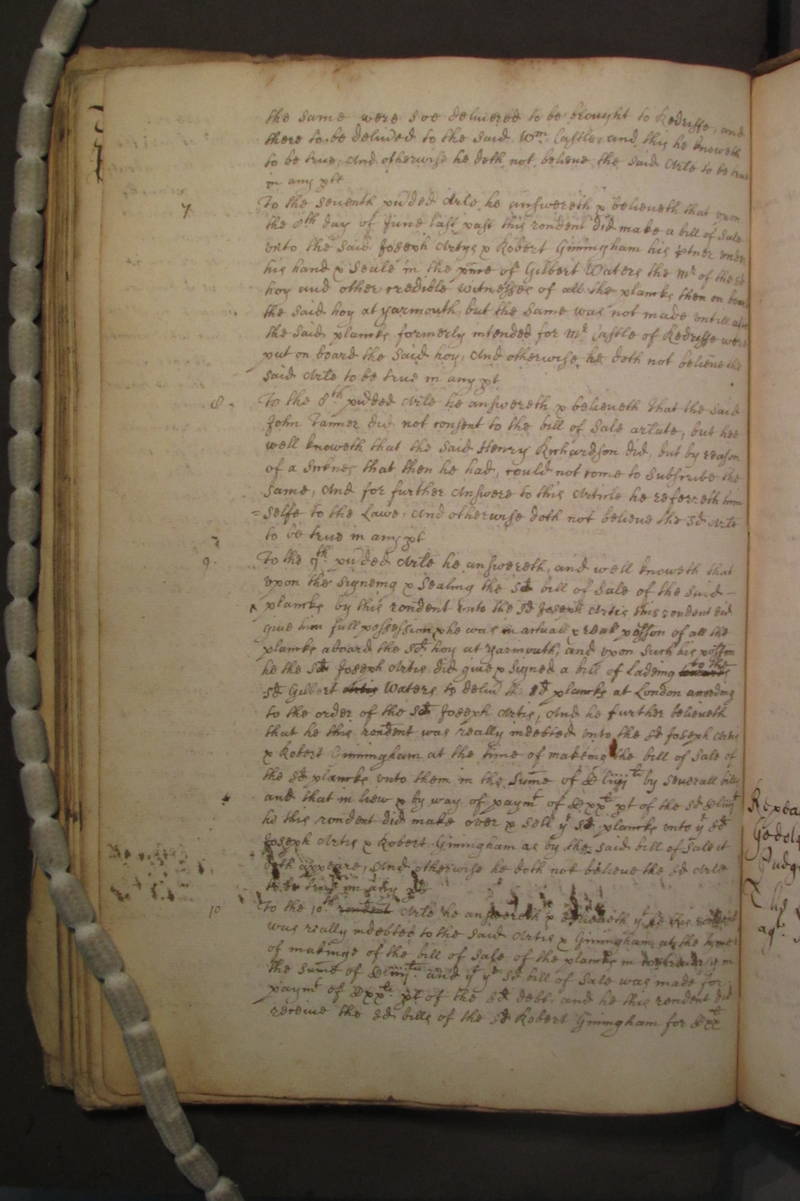 the same were soe deliuered to be brought to Redriffe, and
there to be deliu'ed to the said Wm. Castle, and this he knoweth
to be true, And otherwise he doth not believe the said Arle to be true
in any pte
7 To the seventh pu'ded Arle he answereth & believeth that vpon
the 8th day of June last past this rondent did make a bill of Sale
vnto the said Joseph Artys & Robert Gimingham his ptner vnder
his hand & Seale in the pnce of Gilbert Waters the Mr of the sd
hoy and other credible witnesses of all the plancks then on board
the said hoy at yarmouth, but the same was not made vntill after
the said plancks formerly intended for Mr Castle of Redriffe were
put on board the said hoy, And otherwise he doth not believe this
said Arle to be true in any pt
8. To the 8th pu'ded Arle he answereth & believeth that the said
John Tanner did not consent to the bill of Sale arlate, but hee
well knoweth that the said Henry Richardson did, but by reason
of a sicknes that then he had, could not come to subscribe the
same, And for further Answere to this Article he referreth him
=selfe to the Lawe. And otherwise doth not believe the sd Arle
to be true in any pt
9. To the 9th. pu'ded Arle he answereth, and well knoweth that
vpon the signeing & sealing the sd bill of Sale of the said
plancks by this rondent vnto the sd Joseph Artis this rondent did
giue him full possession & he was in actuall & reall possion of all the
plancks aboard the sd hoy at yarmouth, and vpon such his possion
he the sd Joseph Artis did giue & signed a bill of lading to the
sd Gilbert Artis Waters to deliu' the sd plancks at London according
to the order of the sd Joseph Artis, And he further believeth
that he this rondent was really indebted vnto the sd Joseph Artis
& Robert Gimingham at the time of makeing the bill of Sale of
the sd plancks vnto them in the sume of by seuerall bills
and that in liew & by way of paymt of pt of the sd
he this rondent did make over & sell ye sd plancks vnto ye sd
Joseph Artis & Robert Gimingham as by the said bill of Sale it
doth appeare, And otherwise he doth not believe the sd Arle
to be true in any pt
10 To the 10th rondent Arle he answereth & believeth yt he this rondent
was really indebted to the said Artis & Gimingham at the time
of makeinge of the bill of Sale of the plancks in in
the sume of and yt ye sd bill of Sale was made for
paymt of pt of the sd debt. and he this rondent did
receiue the sd bills of the sd Robert Gimingham for
Judg